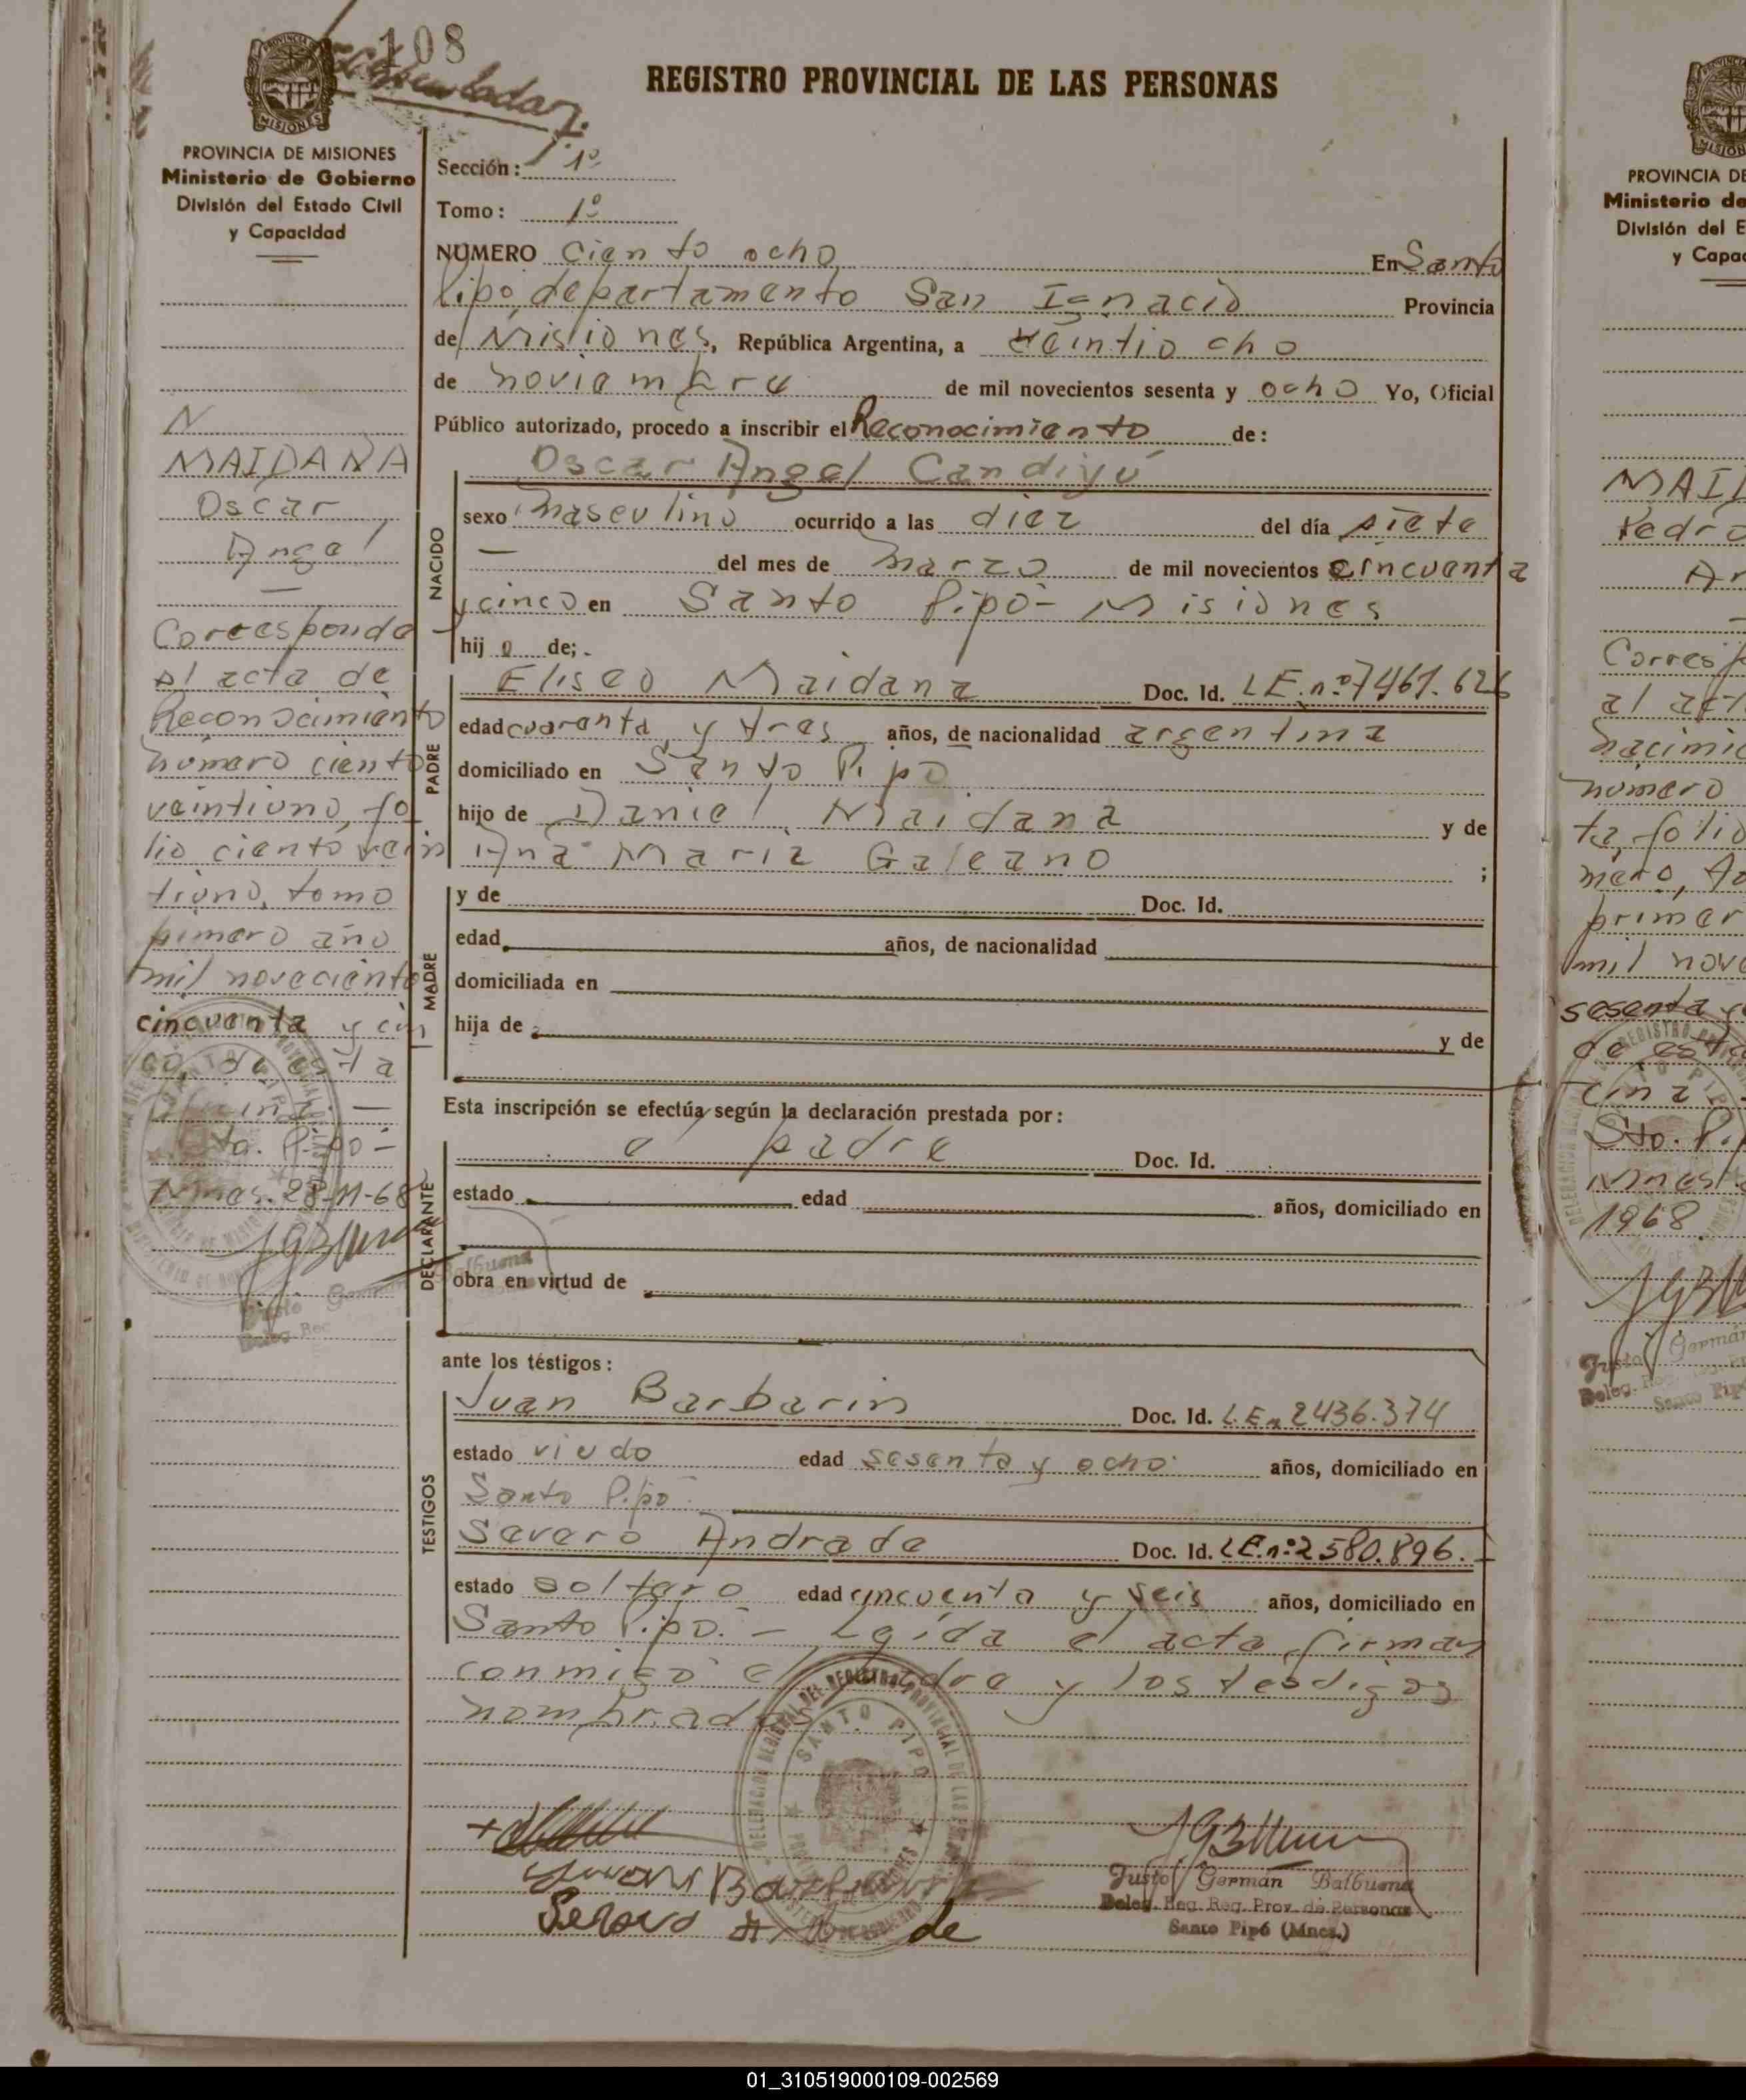 108
REGISTRO PROVINCIAL DE LAS PERSONAS
MISIONES
PROVINCIA DE MISIONES
Ministerio de Gobierno
División del Estado Civil
y Capacidad
N
MAIDANA
Oscar
Angel
—
Corresponde
al acta de
Reconocimiento
número ciento
veintiuno, fo
lio ciento vein
tiuno, tomo
primero año
mil noveciento
cincuenta y cin
co, de esta
Sto. Pipó-
Mnes. 28-11-68
Sección: 1º
Tomo: 1º
NUMERO Ciento ocho En Santo
Pipó, departamento San Ignacio Provincia
de Misiones, República Argentina, a veintiocho
de noviembre de mil novecientos sesenta y ocho Yo, Oficial
Público autorizado, procedo a inscribir el Reconocimiento de:
NACIDO
Oscar Angel Candiyú
sexo masculino ocurrido a las diez del día siete
— del mes de marzo de mil novecientos cincuenta
y cinco en Santo Pipó- Misiones
hijo de;
PADRE
Eliseo Maidana Doc. Id. L.E.nº7461.626
edad cuaranta y tres años, de nacionalidad argentina
domiciliado en Santo Pipó
hijo de Daniel Maidana y de
Ana Maria Galeano ;
MADRE
y de Doc. Id.
edad años, de nacionalidad
domiciliada en
hija de y de
Esta inscripción se efectúa según la declaración prestada por:
DECLARANTE
el padre Doc. Id.
estado edad años, domiciliado en
obra en virtud de
ante los téstigos:
TESTIGOS
Juan Barbarin Doc. Id. L.E.n 2436.374
estado viudo edad sesenta y ocho años, domiciliado en
Santo Pipó
Severo Andrade Doc. Id. L.E.nº2580.896.
estado soltero edad cincuenta y seis años, domiciliado en
Santo Pipó. — Leida el acta firman
conmigo el padre y los testigos
nombrados
SANTO PIPO
Juan Barbarin
Severo Andrade
Justo Germán Balbuena
Deleg. Reg. Reg. Prov. de Personas
Santo Pipó (Mnes.)
PROVINCIA DE
Ministerio de
División del E
y Capac
MAID
Pedro
An
Corresp
al act
nacimie
número
ta, folio
mero, to
primer
mil nove
sesenta y
de esta
Sto. Pi
Mnes.
1968
Justo Germán
Deleg. Reg.
Santo Pipó
01_310519000109-002569